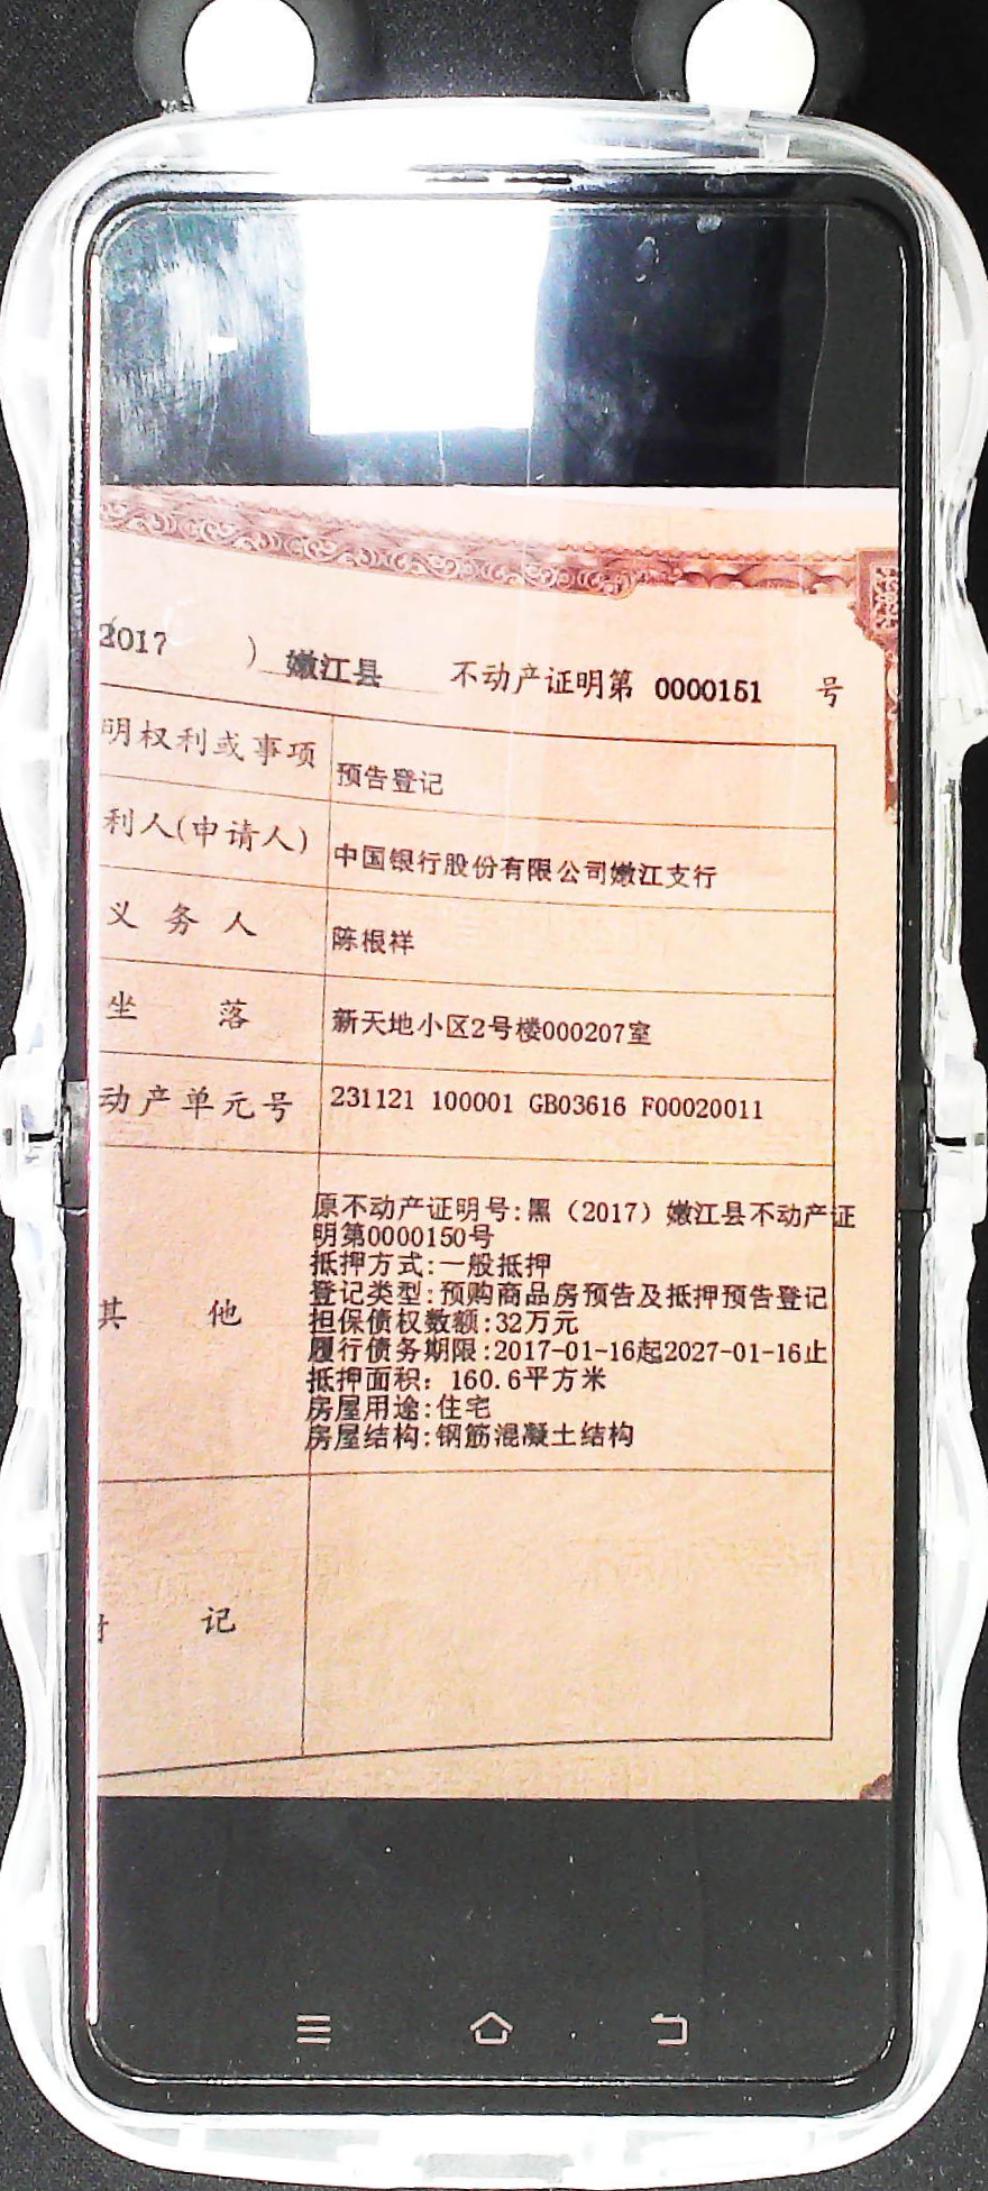 2017 ) 嫩江县 不动产证明第 0000151 号
明权利或事项 预告登记
利人(申请人) 中国银行股份有限公司嫩江支行
义务人 陈根祥
坐落 新天地小区2号楼000207室
动产单元号 231121 100001 GB03616 F00020011
其他
原不动产证明号:黑（2017）嫩江县不动产证
明第0000150号
抵押方式:一般抵押
登记类型:预购商品房预告及抵押预告登记
担保债权数额:32万元
履行债务期限:2017-01-16起2027-01-16止
抵押面积：160.6平方米
房屋用途:住宅
房屋结构:钢筋混凝土结构
记